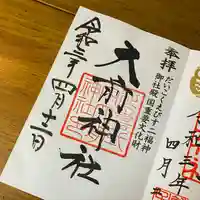 奉拝
だいこくえびす二福神
御社殿国重要文化財
大前神社
令和三年四月十二日
令和三年
四月